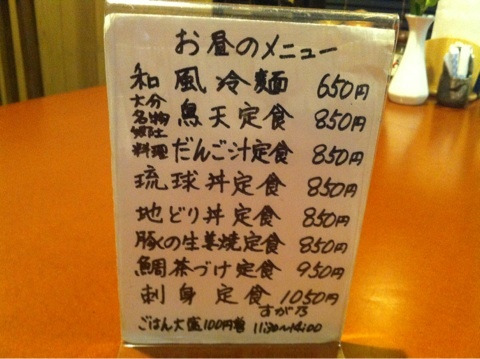 お昼のメニュー
和風冷麺 650円
大分名物郷土料理
鳥天定食 850円
だんご汁定食 850円
琉球丼定食 850円
地どり丼定食 850円
豚の生姜焼定食 850円
鯛茶づけ定食 950円
刺身定食 1050円
すが乃
ごはん大盛100円増 11:30~14:00